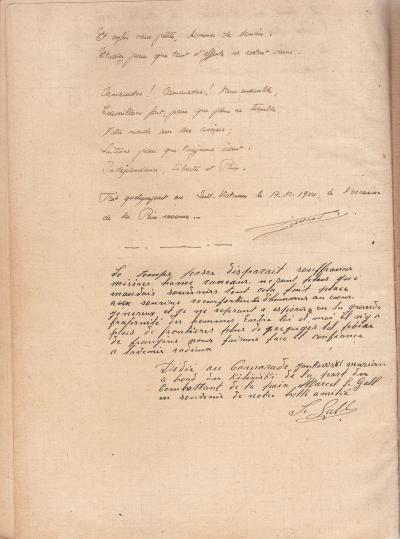 Et enfin vous petits, hommes de demain;
Etudiez pour que tant d'efforts ne restent vains.
Camarades! Camarades! Tous ensemble,
Travaillons fort, pour que plus ne tremble
Notre monde sur ses
Luttons pour que toujours vivent:
Indépendance, Liberté et Paix.
Fait quelquepart au Sud-Vietnam le 17.10.1954, à l'occasion
de la Paix revenue...
Le temps passe disparait souffrances
misères haine rancœurs, ne sont plus que
mauvais souvenirs tout cela fait place
aux sourires réconfortants d'hommes au cœur
généreux et je me reprend a esperer en la grande
fraternité des hommes. Entre toi et moi il n'y a
plus de frontières plus de préjugés
de nous fairons face et confiance
a radieux
Dédié au Camarade Jankowski marian
a bord du Kilinski de la part d'un
Combattant de la paix, Marcel Le Gall
en souvenir de notre belle amitié
Le Gall